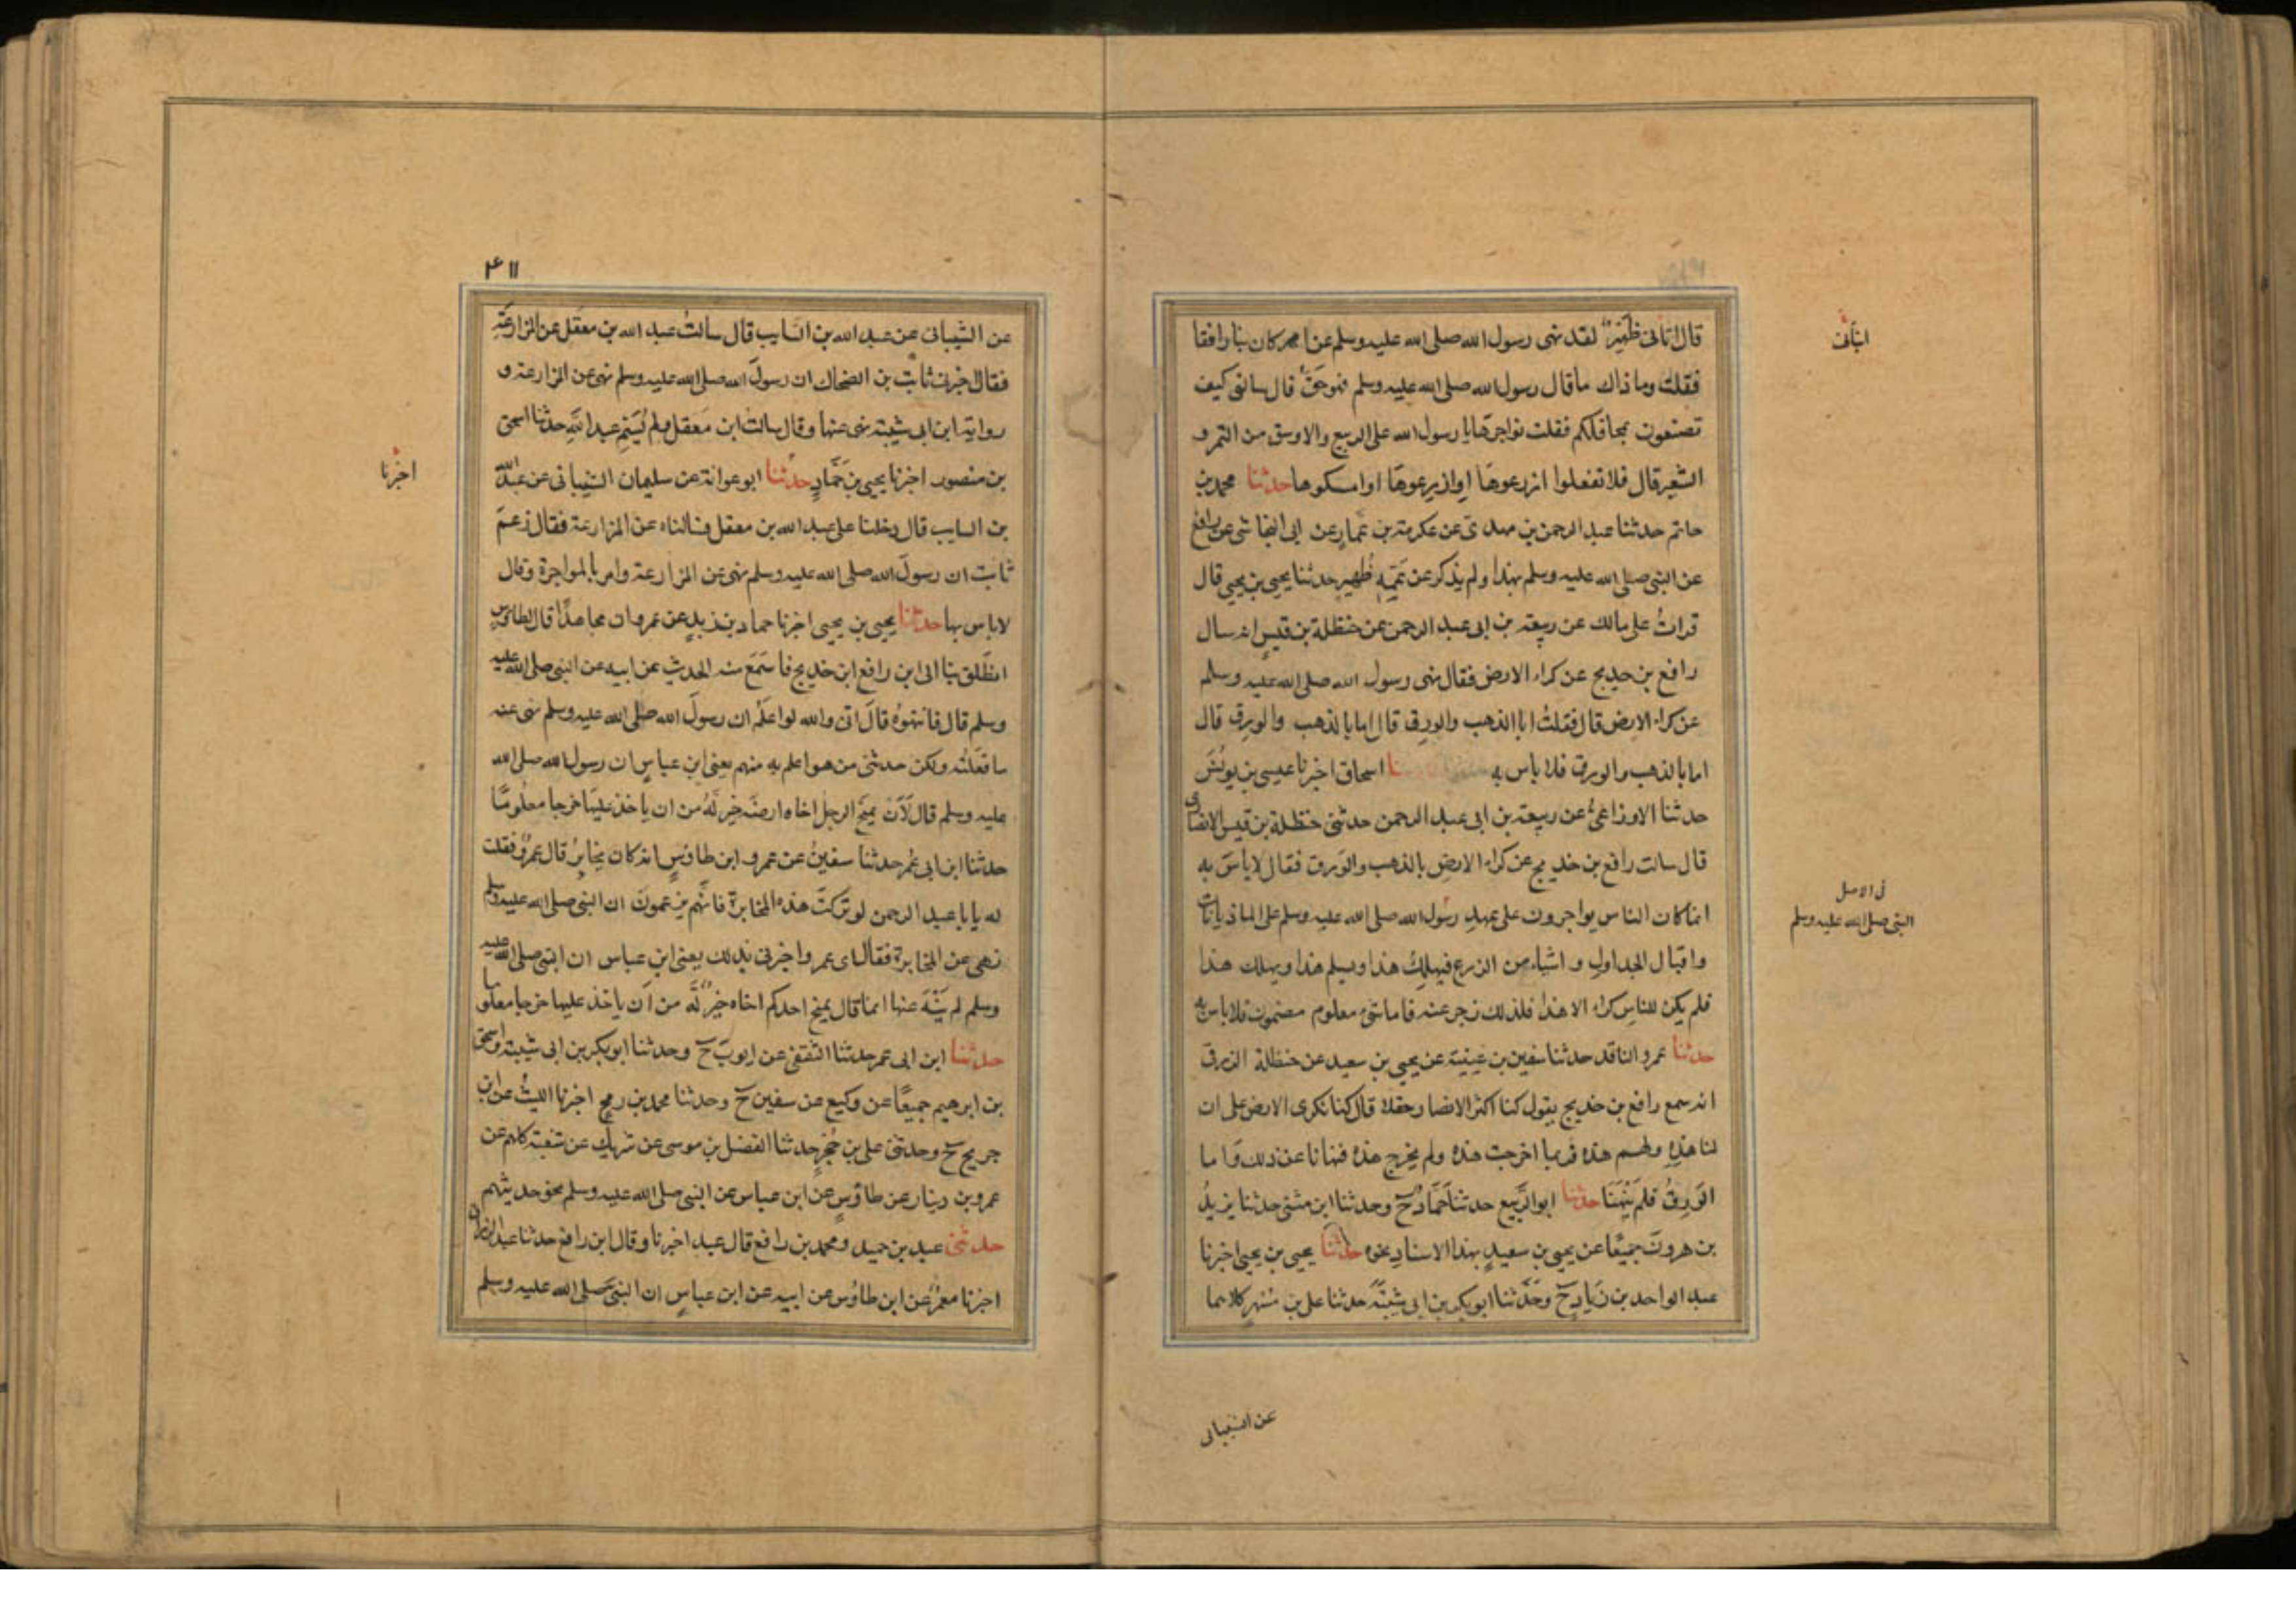 قال اتانى ظهير لقد نهى رسول الله صلى الله عليه وسلم عن امر كان بنا رافقا
فقلت وما ذاك ما قال رسول الله صلى الله عليه وسلم فهو حق قال سالنى كيف
تصنعون بمحاقلكم فقلت نواجرها يا رسول الله على الربيع والاوسق من التمر و
الشعير قال فلا تفعلوا ازرعوها او ازرعوها او امسكوها حدثنا محمد بن
حاتم حدثنا عبد الرحمن بن مهدى عن عكرمة بن عمار عن ابى النجاشى عن رافع
عن النبى صلى الله عليه وسلم بهذا ولم يذكر عن عمه ظهير حدثنا يحيى بن يحيى قال
قرات على مالك عن ربيعة بن ابى عبد الرحمن عن حنظلة بن قيس انه سال
رافع بن خديج عن كراء الارض فقال نهى رسول الله صلى الله عليه وسلم
عن كراء الارض قال فقلت ابا الذهب والورق قال اما بالذهب والورق قال
اما بالذهب والورق فلا باس به اسحاق اخبرنا عيسى بن يونس
حدثنا الاوزاعى عن ربيعة بن ابى عبد الرحمن حدثنى حنظلة بن قيس الانصارى
قال سالت رافع بن خديج عن كراء الارض بالذهب والورق فقال لا باس به
انما كان الناس يواجرون على عهد رسول الله صلى الله عليه وسلم على الماذيانات
واقبال الجداول واشياء من الزرع فيهلك هذا ويسلم هذا ويهلك هذا
فلم يكن للناس كراء الا هذا فلذلك زجر عنه فاما شئ معلوم مضمون فلا باس به
حدثنا عمرو الناقد حدثنا سفين بن عيينة عن يحيى بن سعيد عن حنظلة الزرقى
انه سمع رافع بن خديج يقول كنا اكثر الانصار حقلا قال كنا نكرى الارض على ان
لنا هذه ولهم هذه فربما اخرجت هذه ولم يخرج هذه فنهانا عن ذلك واما
الورق فلم ينهنا حدثنا ابو الربيع حدثنا حماد ح وحدثنا ابن مثنى حدثنا يزيد
بن هرون جميعا عن يحيى بن سعيد بهذا الاسناد نحوه حدثنا يحيى بن يحيى اخبرنا
عبد الواحد بن زياد ح وحدثنا ابو بكر بن ابى شيبة حدثنا على بن مسهر كلاهما
فى الاصل
النبى صلى الله عليه وسلم
عن الشيبانى
۴۱۱
عن الشيبانى عن عبد الله بن السايب قال سالت عبد الله بن معقل عن المزارعة
فقال اخبرنى ثابت بن الضحاك ان رسول الله صلى الله عليه وسلم نهى عن المزارعة و
رواية ابن ابى شيبة نهى عنها وقال سالت ابن معقل ولم يسم عبد الله حدثنا اسحق
بن منصور اخبرنا يحيى بن حماد حدثنا ابو عوانة عن سليمان الشيبانى عن عبد الله
بن السايب قال دخلنا على عبد الله بن معقل فسالناه عن المزارعة فقال زعم
ثابت ان رسول الله صلى الله عليه وسلم نهى عن المزارعة وامر بالمواجرة وقال
لا باس بها حدثنا يحيى بن يحيى اخبرنا حماد بن زيد عن عمرو ان مجاهدا قال لطاوس
انطلق بنا الى ابن رافع ابن خديج فاسمع منه الحديث عن ابيه عن النبى صلى الله عليه
وسلم قال فانتهره قال انى والله لو اعلم ان رسول الله صلى الله عليه وسلم نهى عنه
ما فعلته ولكن حدثنى من هو اعلم به منهم يعنى ابن عباس ان رسول الله صلى الله
عليه وسلم قال لان يمنح الرجل اخاه ارضه خير له من ان ياخذ عليها خرجا معلوما
حدثنا ابن ابى عمر حدثنا سفين عن عمرو ابن طاوس انه كان يخابر قال عمرو فقلت
له يا با عبد الرحمن لو تركت هذه المخابرة فانهم يزعمون ان النبى صلى الله عليه وسلم
نهى عن المخابرة فقال اى عمرو اخبرنى بذلك يعنى ابن عباس ان النبى صلى الله عليه
وسلم لم ينه عنها انما قال يمنح احدكم اخاه خير له من ان ياخذ عليها خرجا معلوما
حدثنا ابن ابى عمر حدثنا الثقفى عن ايوب ح وحدثنا ابو بكر بن ابى شيبة واسحق
بن ابرهيم جميعا عن وكيع عن سفين ح وحدثنا محمد بن رمح اخبرنا الليث عن ابن
جريج ح وحدثنى على بن حجر حدثنا الفضل بن موسى عن شريك عن شعبة كلهم عن
عمرو بن دينار عن طاوس عن ابن عباس عن النبى صلى الله عليه وسلم نحو حديثهم
حدثنى عبد بن حميد ومحمد بن رافع قال عبد اخبرنا وقال ابن رافع حدثنا عبد الرزاق
اخبرنا معمر عن ابن طاوس عن ابيه عن ابن عباس ان النبى صلى الله عليه وسلم
اخبرنا